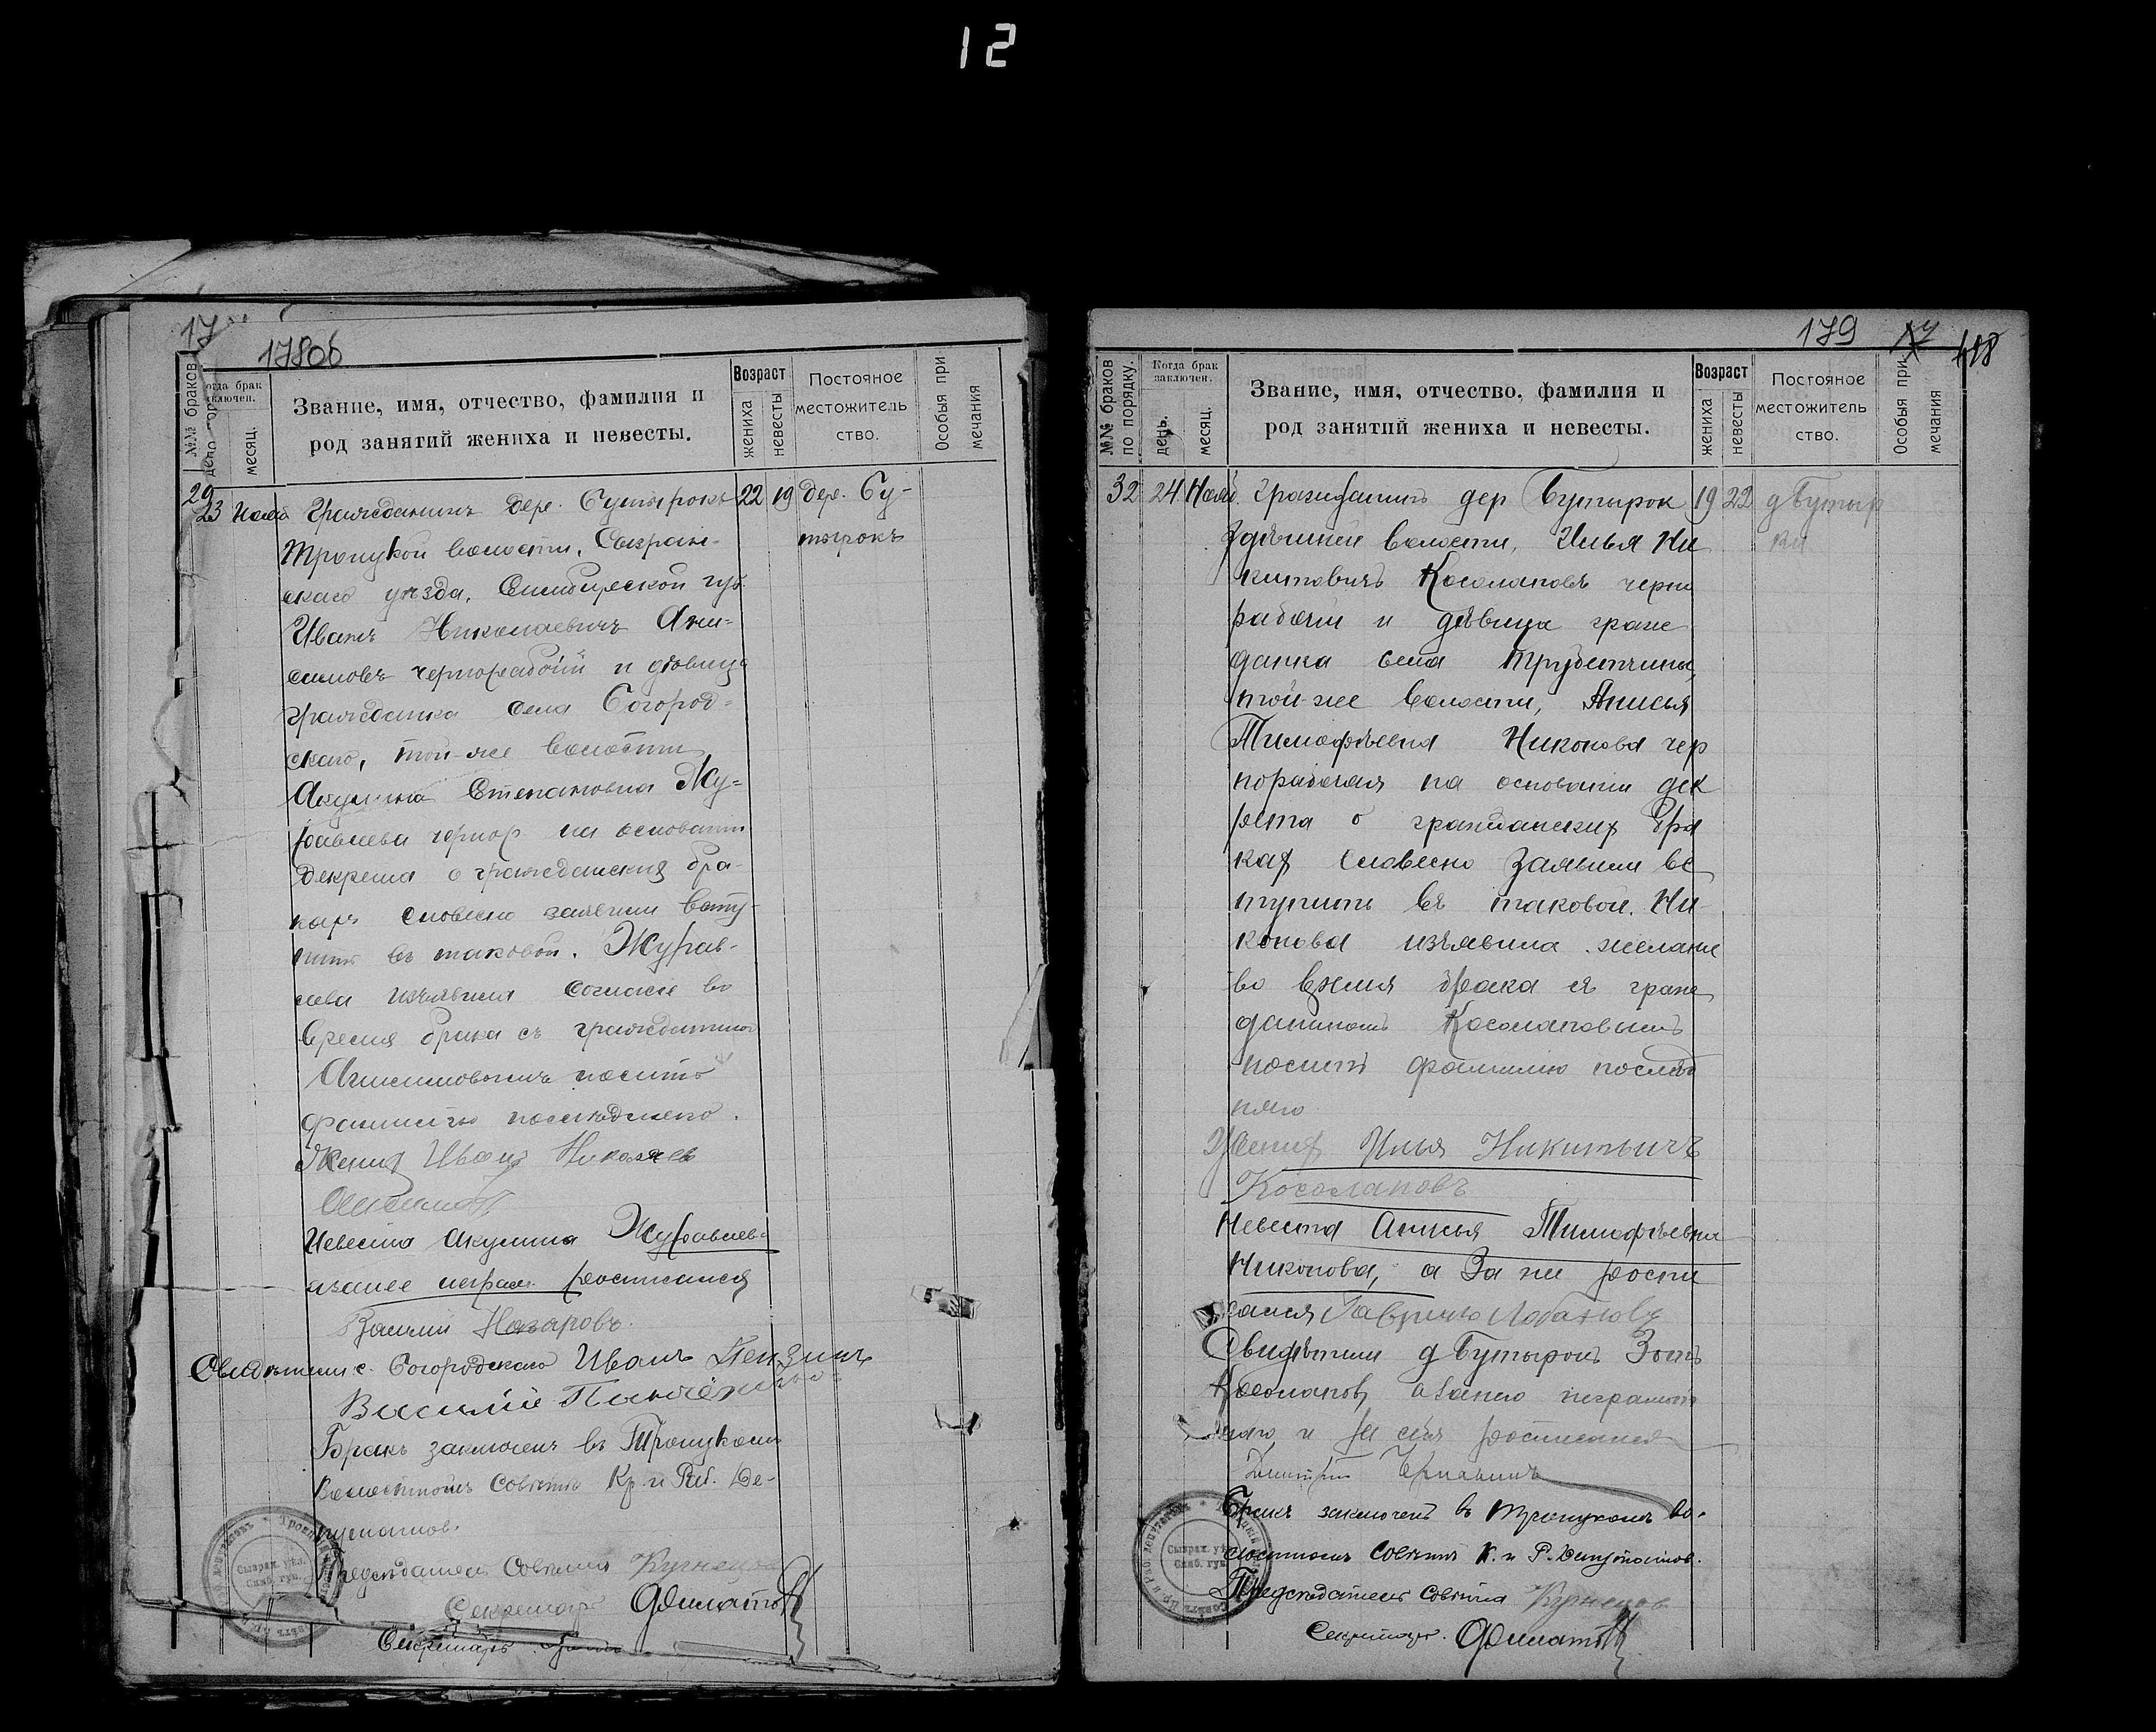 12
17
178об
№№ браков
по порядку.
Когда брак
заключен.
месяц.
Звание, имя, отчество, фамилия и
род занятий жениха и невесты.
Возраст
жениха
невесты
Постояное
местожитель
ство.
Особыя при
мечания
29
23 Гражданинъ дер. Бутырокъ 22 19 дер. Бу-
Троицкой волости, Сызран- тырокъ
скаго уѣзда, Симбирской губ.
Иванъ Николаевичъ Они-
симовъ чернорабочій и дѣвица
гражданка села Богород-
скаго, той-же волости
Акулина Степановна Жу-
равлева чернор на основании
декрета о гражданских бра-
кахъ словесно заявили всту-
пить въ таковой. Журав-
лева изъявила согласіе во
время брака съ гражданиномъ
Онисимовымъ носить
фамилію послѣдняго.
Жених Иванъ Николаев
Невеста Акулина Журавлев-
а за нее неграм. росписался
Василий Назаровъ.
Свидѣтели с. Богородскаго Иванъ Пензинъ
Василій
Бракъ заключенъ въ Троицкомъ
Волостномъ Совѣтѣ Кр. и Раб. Де-
путатов.
Председатель Совѣта Кузнецов
Секретарь Филатов
Секретарь
179
418
№№ браков
по порядку.
Когда брак
заключен.
день.
месяц.
Звание, имя, отчество, фамилия и
род занятий жениха и невесты.
Возраст
жениха
невесты
Постояное
местожитель
ство.
Особыя при
мечания
32 24 Нояб. Гражданинъ дер Бутырок 19 22 д Бутыр
Здѣшней волости, Илья Ни ки
китовичъ Косолаповъ черно
рабочи и дѣвица граж
данка села Трубетчины,
той-же волости, Анисья
Тимофѣевна Никонова чер
норабочая на основании дек
рета о гражданских бра
ках словесно заявили вс
тупить въ таковой. Ни-
конова изъявила желание
во время брака съ граж
даниномъ Косолаповымъ
носить фамилию послѣд
няго
Жених Илья Никитьичъ
Косолаповъ
Невеста Анисья Тимофѣевна
Никонова, а за ни роспи
сался Гаврило Лобановъ
Свидѣтели д Бутырок Зотъ
Косолапов, а за него неграмот
наго и за себя росписался
Дмитрий
Бракъ заключенъ в Троицкомъ во-
лостномъ Совѣтѣ К. и Р. Депутатов.
Предсѣдатель Совѣта Кузнецов
Секретарь. Филатов